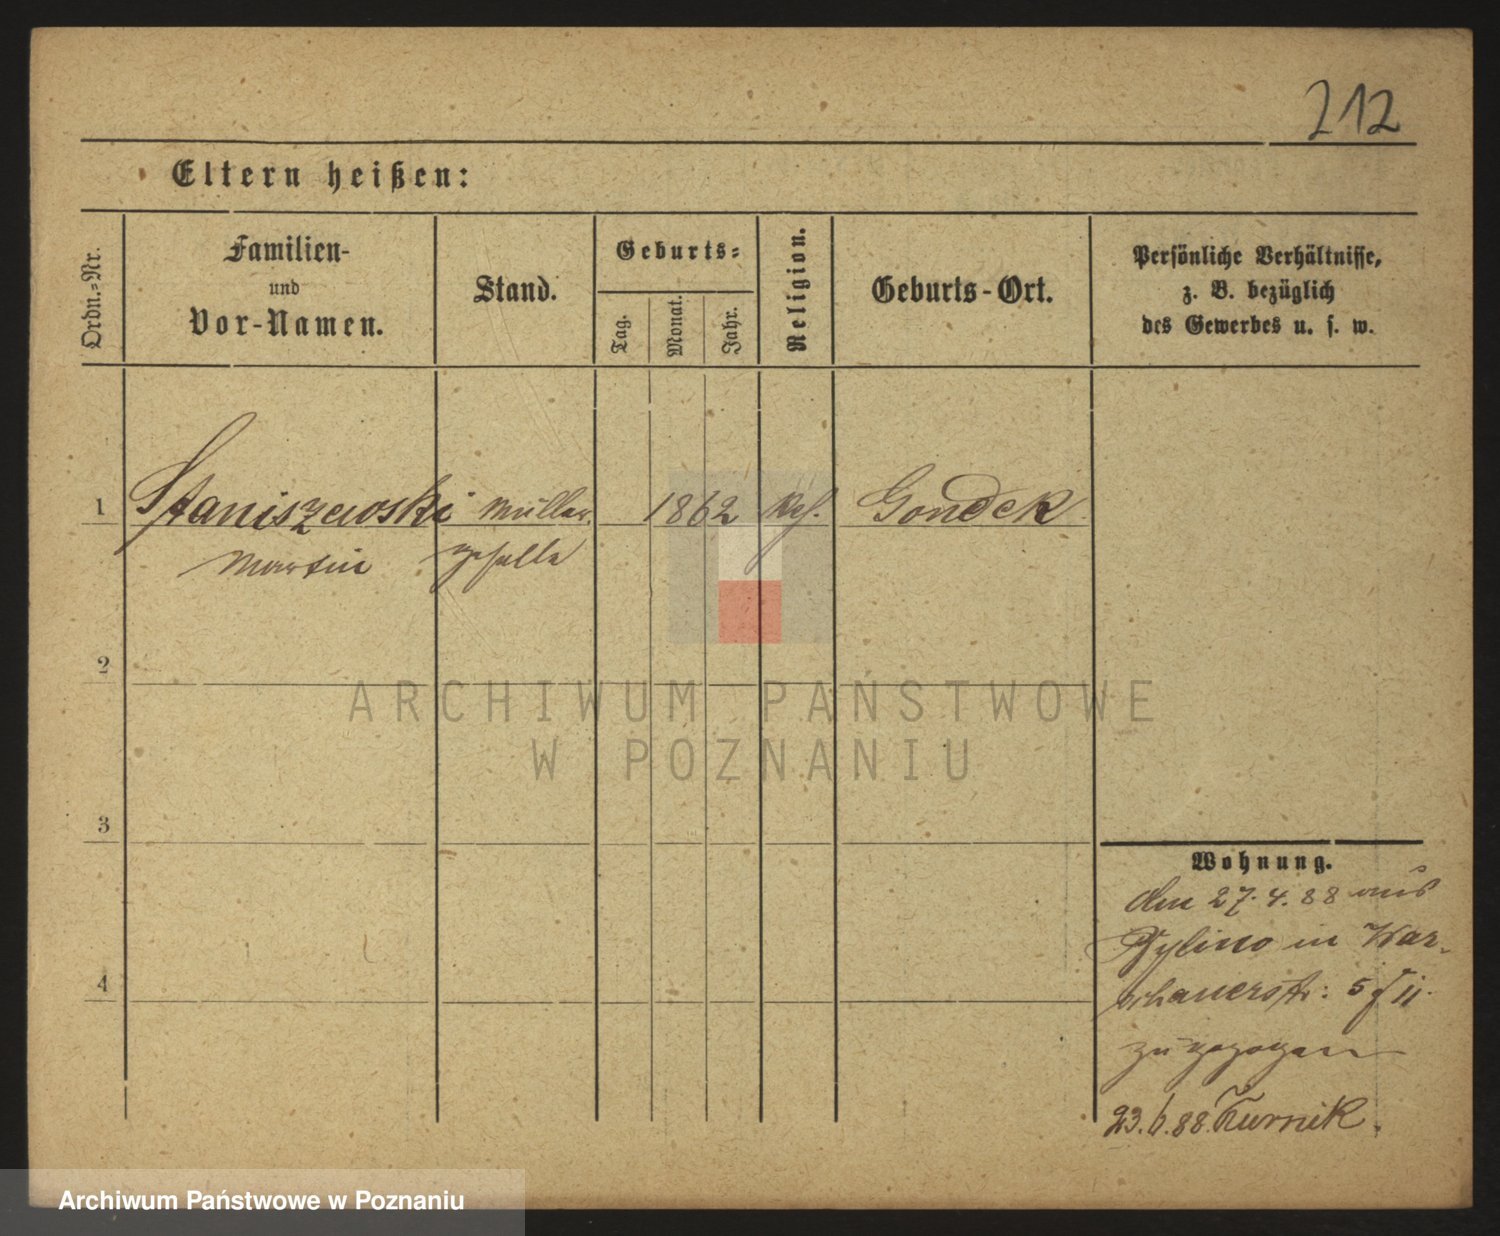 212
Eltern heißen:
Ordn.-Nr.
Familien-
und
Vor-Namen.
Stand.
Geburts-
Tag.
Monat.
Jahr.
Religion.
Geburts-Ort.
Persönliche Verhältnisse,
z. B. bezüglich
des Gewerbes u. s. w.
1 Staniszewski Müller 1862 Gondek
Martin geselle
2
3
4
Wohnung.
den 27.4.88 aus
in War-
schauerstr: 5
zugezogen
23.6.88. Kurnik.
ARCHIWUM PAŃSTWOWE
W POZNANIU
Archiwum Państwowe w Poznaniu